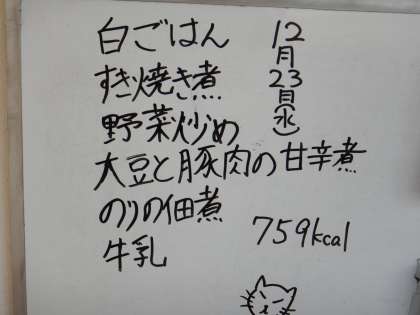 12月23日(水)
白ごはん
すき焼き煮
野菜炒め
大豆と豚肉の甘辛煮
のりの佃煮
牛乳
759kcal